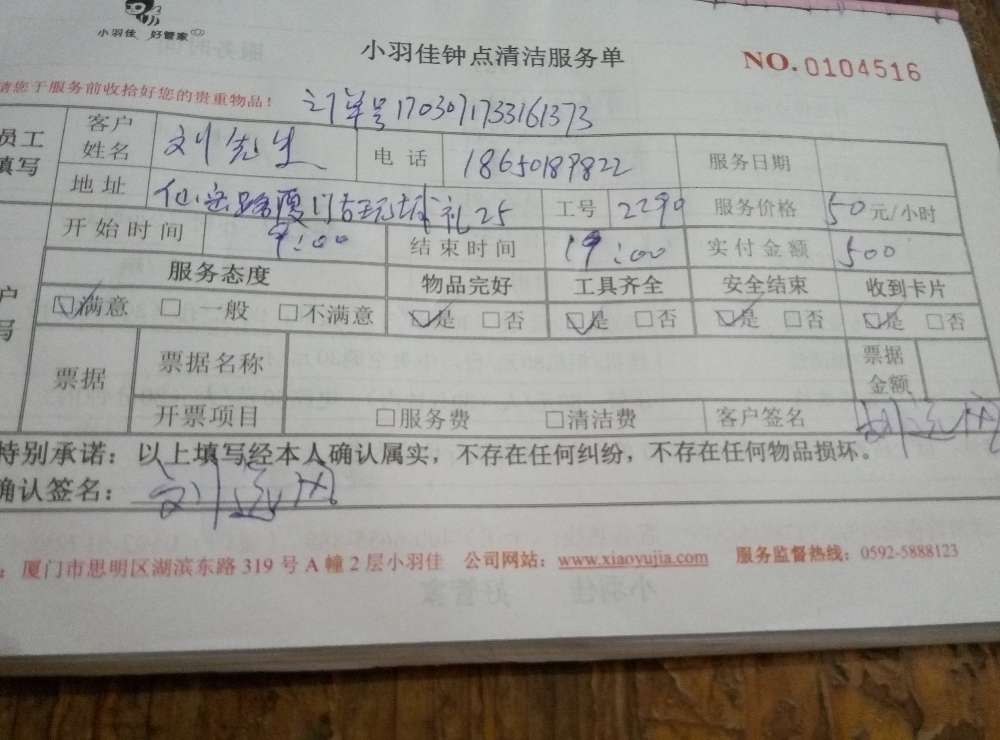 小羽佳 好管家
小羽佳钟点清洁服务单
NO. 0104516
请您于服务前收拾好您的贵重物品!
订单号1703071733161373
员工填写 客户姓名 刘先生 电话 18650189822 服务日期
地址 仙岳路厦门古玩城 礼25 工号 2290 服务价格 50元/小时
开始时间 9:00 结束时间 19:00 实付金额 500
服务态度 物品完好 工具齐全 安全结束 收到卡片
☑满意 □一般 □不满意 ☑是 □否 ☑是 □否 ☑是 □否 ☑是 □否
票据 票据名称 票据金额
开票项目 □服务费 □清洁费 客户签名
特别承诺:以上填写经本人确认属实,不存在任何纠纷,不存在任何物品损坏。
确认签名:
厦门市思明区湖滨东路 319 号 A 幢 2 层小羽佳 公司网站:www.xiaoyujia.com 服务监督热线:0592-5888123